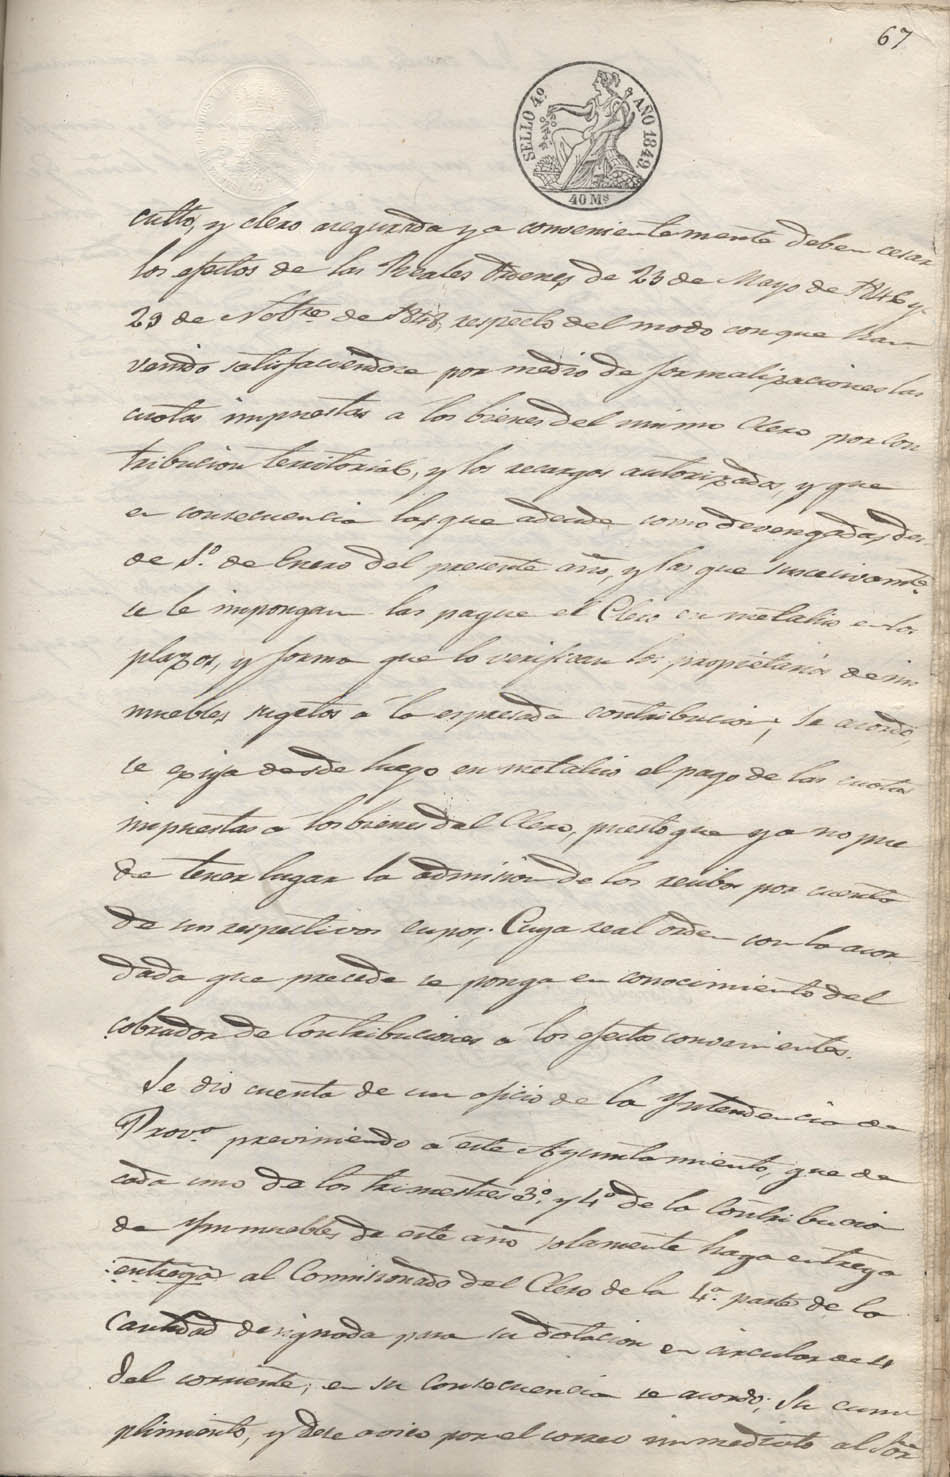 67
SELLO 4.º AÑO 1849.
40 Ms
culto, y clero asegurada ya convenientemente deben cesar
los efectos de las Reales Ordenes de 23 de Mayo de 1846 y
29 de Nobre. de 1848, respecto del modo con que han
venido satisfaciendose por medio de formalizaciones las
cuotas impuestas a los bienes del mismo Clero por con
tribucion territorial, y los recargos autorizados, y que
en consecuencia las que adeude como devengadas des
de 1.º de Enero del presente año, y las que succesivamte.
se le impongan las pague el Clero en metalico en los
plazos, y forma que lo verifican los propietarios de in
muebles sugetos á la espresada contribucion; Se acordó,
se exija desde luego en metalico el pago de las cuotas
impuestas a los bienes del Clero, puesto que ya no pue
de tener lugar la admision de los recibos por cuenta
de sus respectivos cupos; Cuya real orden con lo acor
dado que precede se ponga en conocimiento del
cobrador de Contribuciones a los efectos convenientes.
Se dio cuenta de un oficio de la Yntendencia de
Prov.a previniendo a este Ayuntamiento, que de
cada uno de los trimestres 3.º y 4.º de la Contribucion
de Ynmuebles de este año solamente haga entrega
entrega al Comisionado del Clero de la 4.a parte de la
Cantidad designada para su dotacion en circular de 4
del corriente; en su Consecuencia se acordó; Su cum
plimiento, y dese aviso por el correo inmediato al Sor.